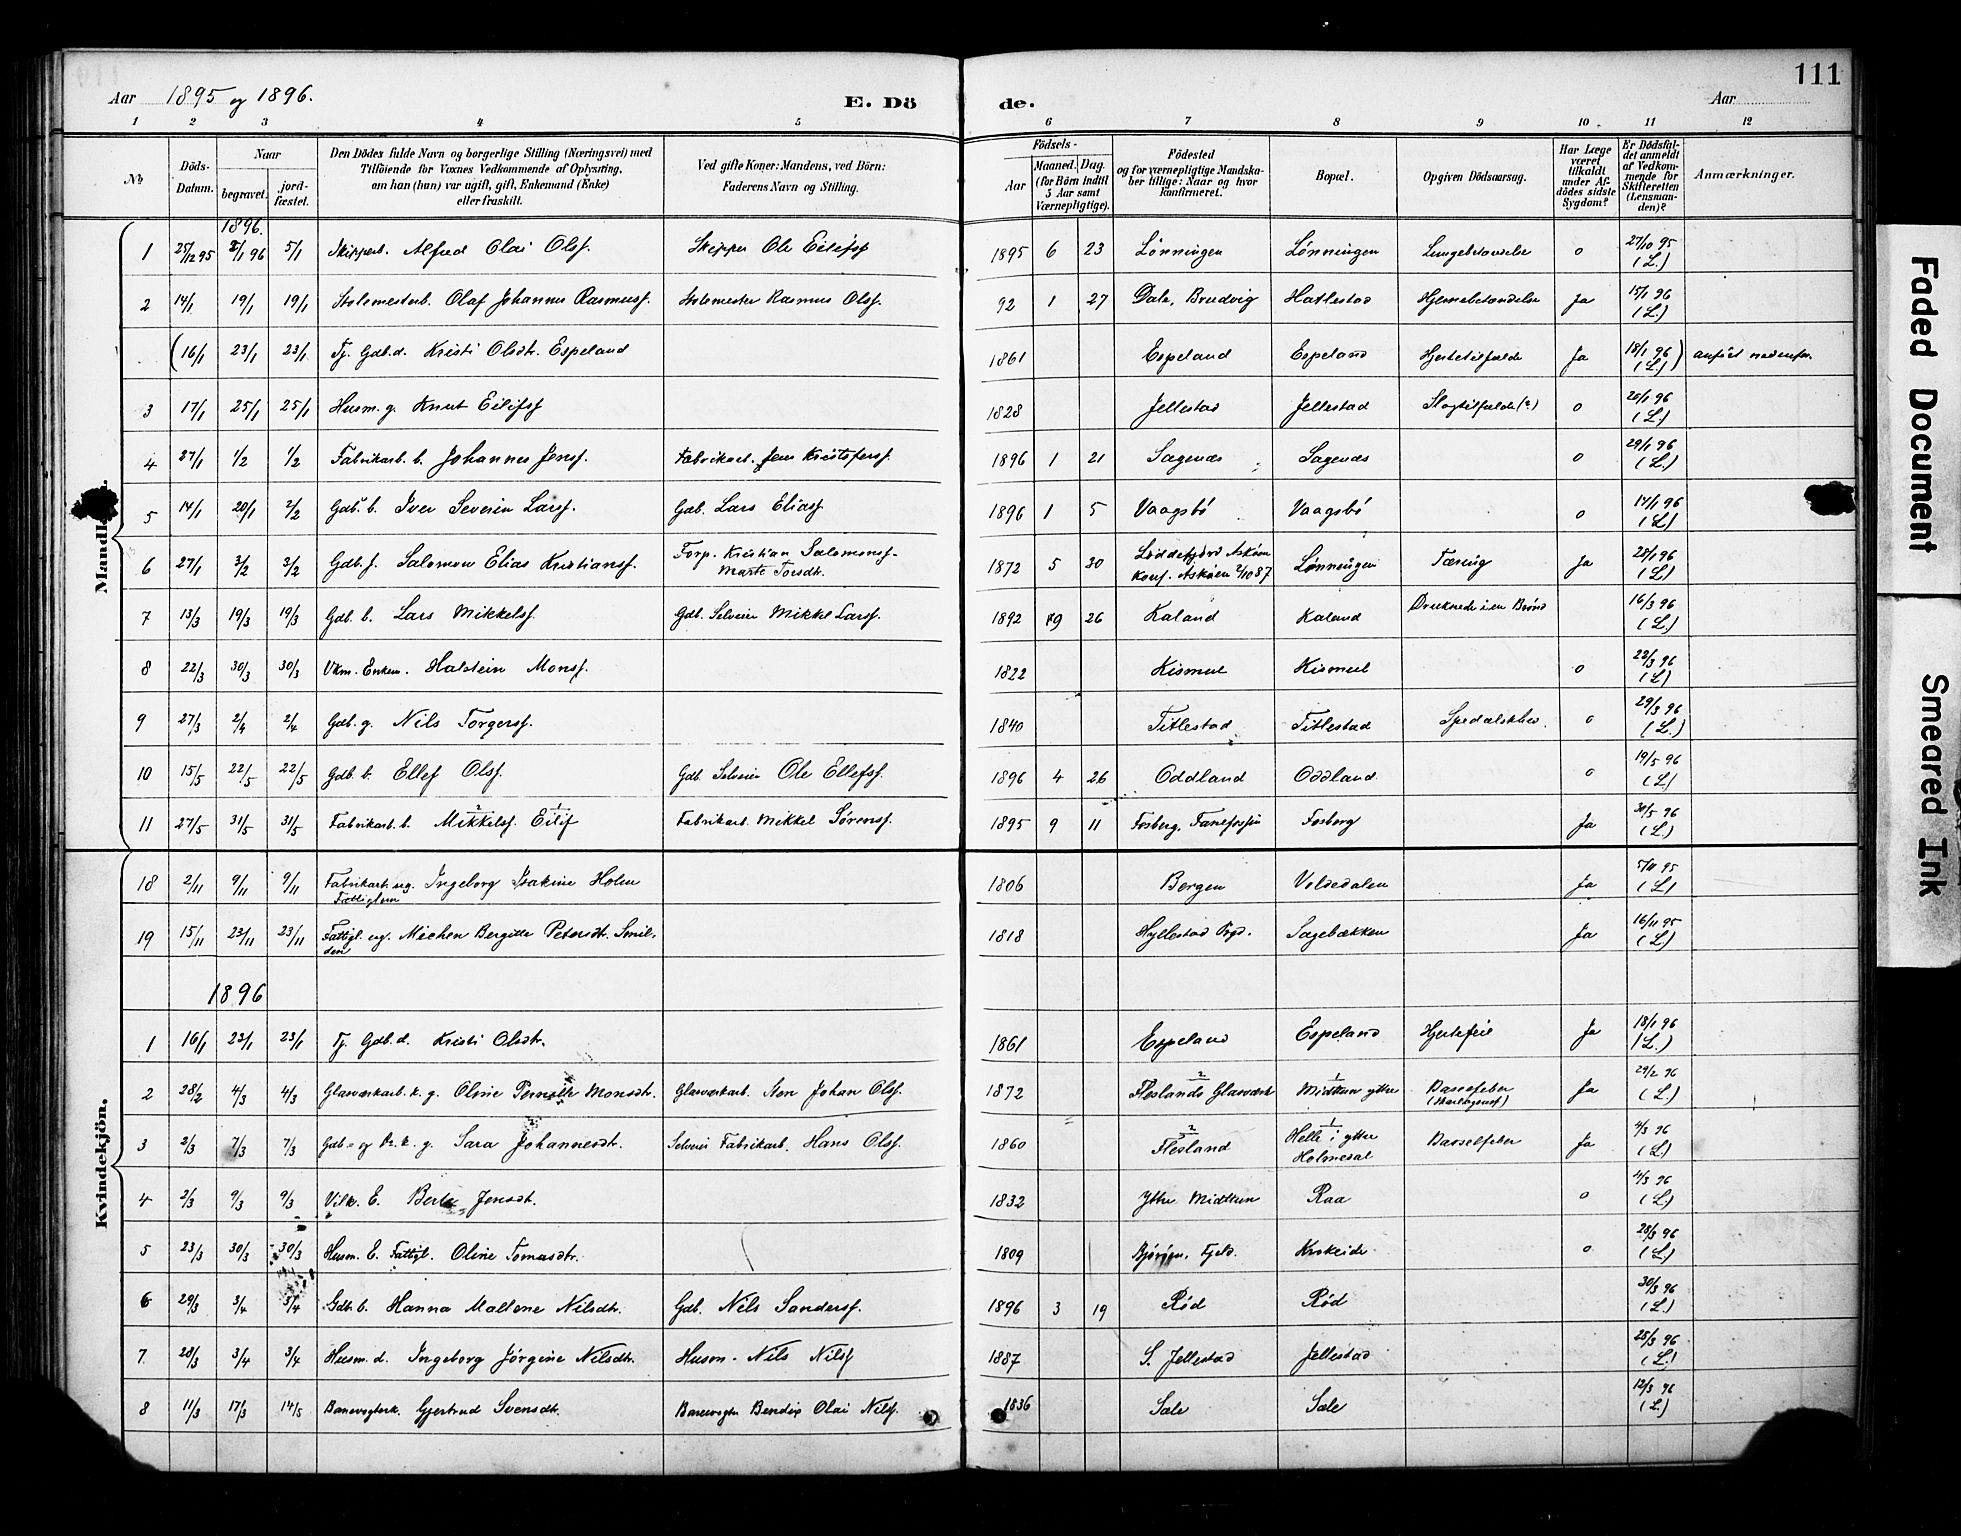 111
Aar 1895 og 1896. E. Dö de. Aar
1 2 3 4 5 6 7 8 9 10 11 12
No Döds-Datum. Naar begravet. jordfæstet. Den Dödes fulde Navn og borgerlige Stilling (Næringsvei) med Tilföiende for Voxnes Vedkommende af Oplysning, om han (hun) var ugift, gift, Enkemand (Enke) eller fraskilt. Ved gifte Koner: Mandens, ved Börn: Faderens Navn og Stilling. Födsels- Aar Maaned. Dag. (for Börn indtil 5 Aar samt Værnepligtige). Födested og for værnepligtige Mandskaber tillige: Naar og hvor konfirmeret. Bopæl. Opgiven Dödsaarsag. Har Læge været tilkaldt under Afdödes sidste Sygdom? Er Dödsfaldet anmeldt af Vedkommende for Skifteretten (Lensmanden)? Anmærkninger.
Mandkjön.
1896.
1 25/12 95 2/1 96 5/1 Skipperb. Alfred Olai Olsf. Skipper Ole Eilefsf 1895 6 23 Lønningen Lønningen Lungebetændelse o 27/10 95 (L.)
2 14/1 19/1 19/1 Skolemesterb. Olaf Johannes Rasmusf. Skolemester Rasmus Olsf. 92 1 27 Dale, Brudvig Hatlestad Hjernebetændelse Ja 15/1 96 (L.)
(16/1 23/1 23/1 Tj. Gdb.d. Kristi Olsdtr. Espeland 1861 Espeland Espeland Hjertetilfælde Ja 18/1 96 (L.)) anført nedenfor.
3 17/1 25/1 25/1 Husm. g. Knut Eilefsf 1828 Jellestad Jellestad Slagtilfælde (?) o 20/1 96 (L.)
4 27/1 1/2 1/2 Fabrikarb. b. Johannes Jensf. Fabrikarb. Jens Kristofersf. 1896 1 21 Sagenæs Sagenæs o 29/1 96 (L.)
5 14/1 20/1 2/2 Gdb. b. Iver Severin Larsf. Gdb. Lars Eliasf 1896 1 5 Vaagsbö Vaagsbö o 17/1 96 (L.)
6 27/1 3/2 3/2 Gdb. f. Salomon Elias Kristiansf. Forp. Kristian Salomonsf. Marte Torsdtr. 1872 5 30 Loddefjord Askøen Konf. Askøen 2/10 87 Lønningen Tæring Ja 28/1 96 (L.)
7 13/3 19/3 19/3 Gdb. b. Lars Mikkelsf. Gdb. Selveier Mikkel Larsf. 1892 9 26 Kaland Kaland Druknede i en Brønd 16/3 96 (L.)
8 22/3 30/3 30/3 Vkm. Enkem. Halstein Monsf. 1822 Kismul Kismul o 22/3 96 (L.)
9 27/3 2/4 2/4 Gdb. g. Nils Torgersf. 1840 Titlestad Titlestad Spedalskhed. o 29/3 96 (L.)
10 15/5 22/5 22/5 Gdb. b. Ellef Olsf. Gdb Selveier Ole Ellefsf. 1896 4 26 Oddland Oddland o 19/5 96 (L)
11 27/5 31/5 31/5 Fabrikarb. b. Mikkelsf. 2 Eilif 1 Fabrikarb. Mikkel Sørensf. 1895 9 11 Fosberg, Fosberg Ja 30/5 96 (L.)
Kvindekjön.
18 2/11 9/11 9/11 Fabrikarb. ug. Fattiglem Ingeborg Isakine Holm 1806 Bergen Voldedalen Ja 5/11 95 (L)
19 15/11 23/11 23/11 Fattigl. ug. Michen Bergitte Petersdtr. Smilden 1818 Hyllestad Prgd. Sagebækken Ja 16/11 95 (L)
1896
1 16/1 23/1 23/1 Tj. Gdb. d. Kristi Olsdtr. 1861 Espeland Espeland Hjertefeil Ja 18/1 96 (L.)
2 28/2 4/3 4/3 Glasværkarb. k. g. Oline Pernelle Monsdtr. Glasværkarb. Johan Olsf. 1872 2 Fleslands Glasværk 1 Midttun ytre Barselfeber Ja 29/2 96 (L.)
3 2/3 7/3 7/3 Gdb- og k. g. Sara Johannesdtr. Selveier Fabrikarb. Hans Olsf. 1860 2 Flesland 1 Helle i ytre Holmedal Barselfeber Ja 4/3 96 (L)
4 2/3 9/3 9/3 Vilk. E. Berta Jensdtr. 1832 Ytre Midttun Raa o 4/3 96 (L)
5 23/3 30/3 30/3 Husm. E. Fattigl. Oline Tomasdtr. 1809 Bjørøen, Fjeld. Krokeide o 28/3 96 (L.)
6 29/3 3/4 3/4 Gdb. b. Hanna Mallene Nilsdtr. Gdb. Nils Sandersf. 1896 3 19 Rød Rød 30/3 96 (L.)
7 28/3 3/4 3/4 Husm. d. Ingeborg Jørgine Nilsdtr. Husm. Nils Nilsf 1887 S. Jellestad Jellestad 28/3 96 (L.)
8 11/3 17/3 14/5 Banevogterk. Gjertrud Svensdtr. Banevogter Bendix Olai Nilsf. 1836 Sæle Sæle 12/3 96 (L.)
Faded Document
Smeared Ink